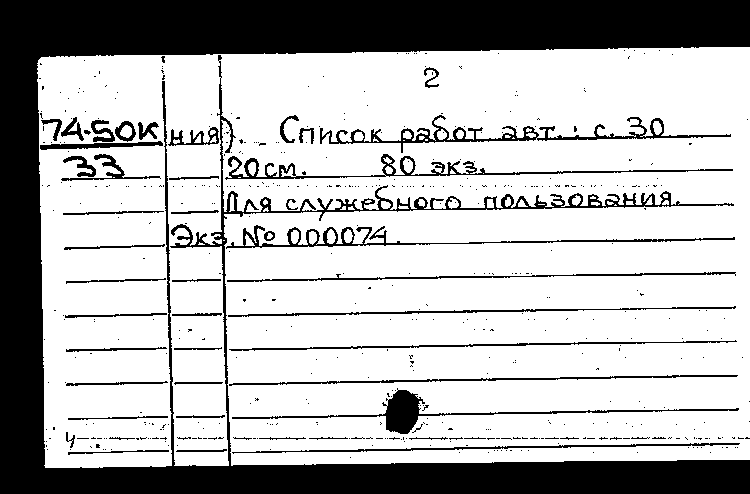 2
74-50к ния). Список работ авт.: с. 30
33 20см. 80 экз.
Для служебного пользования.
Экз. № 000074.